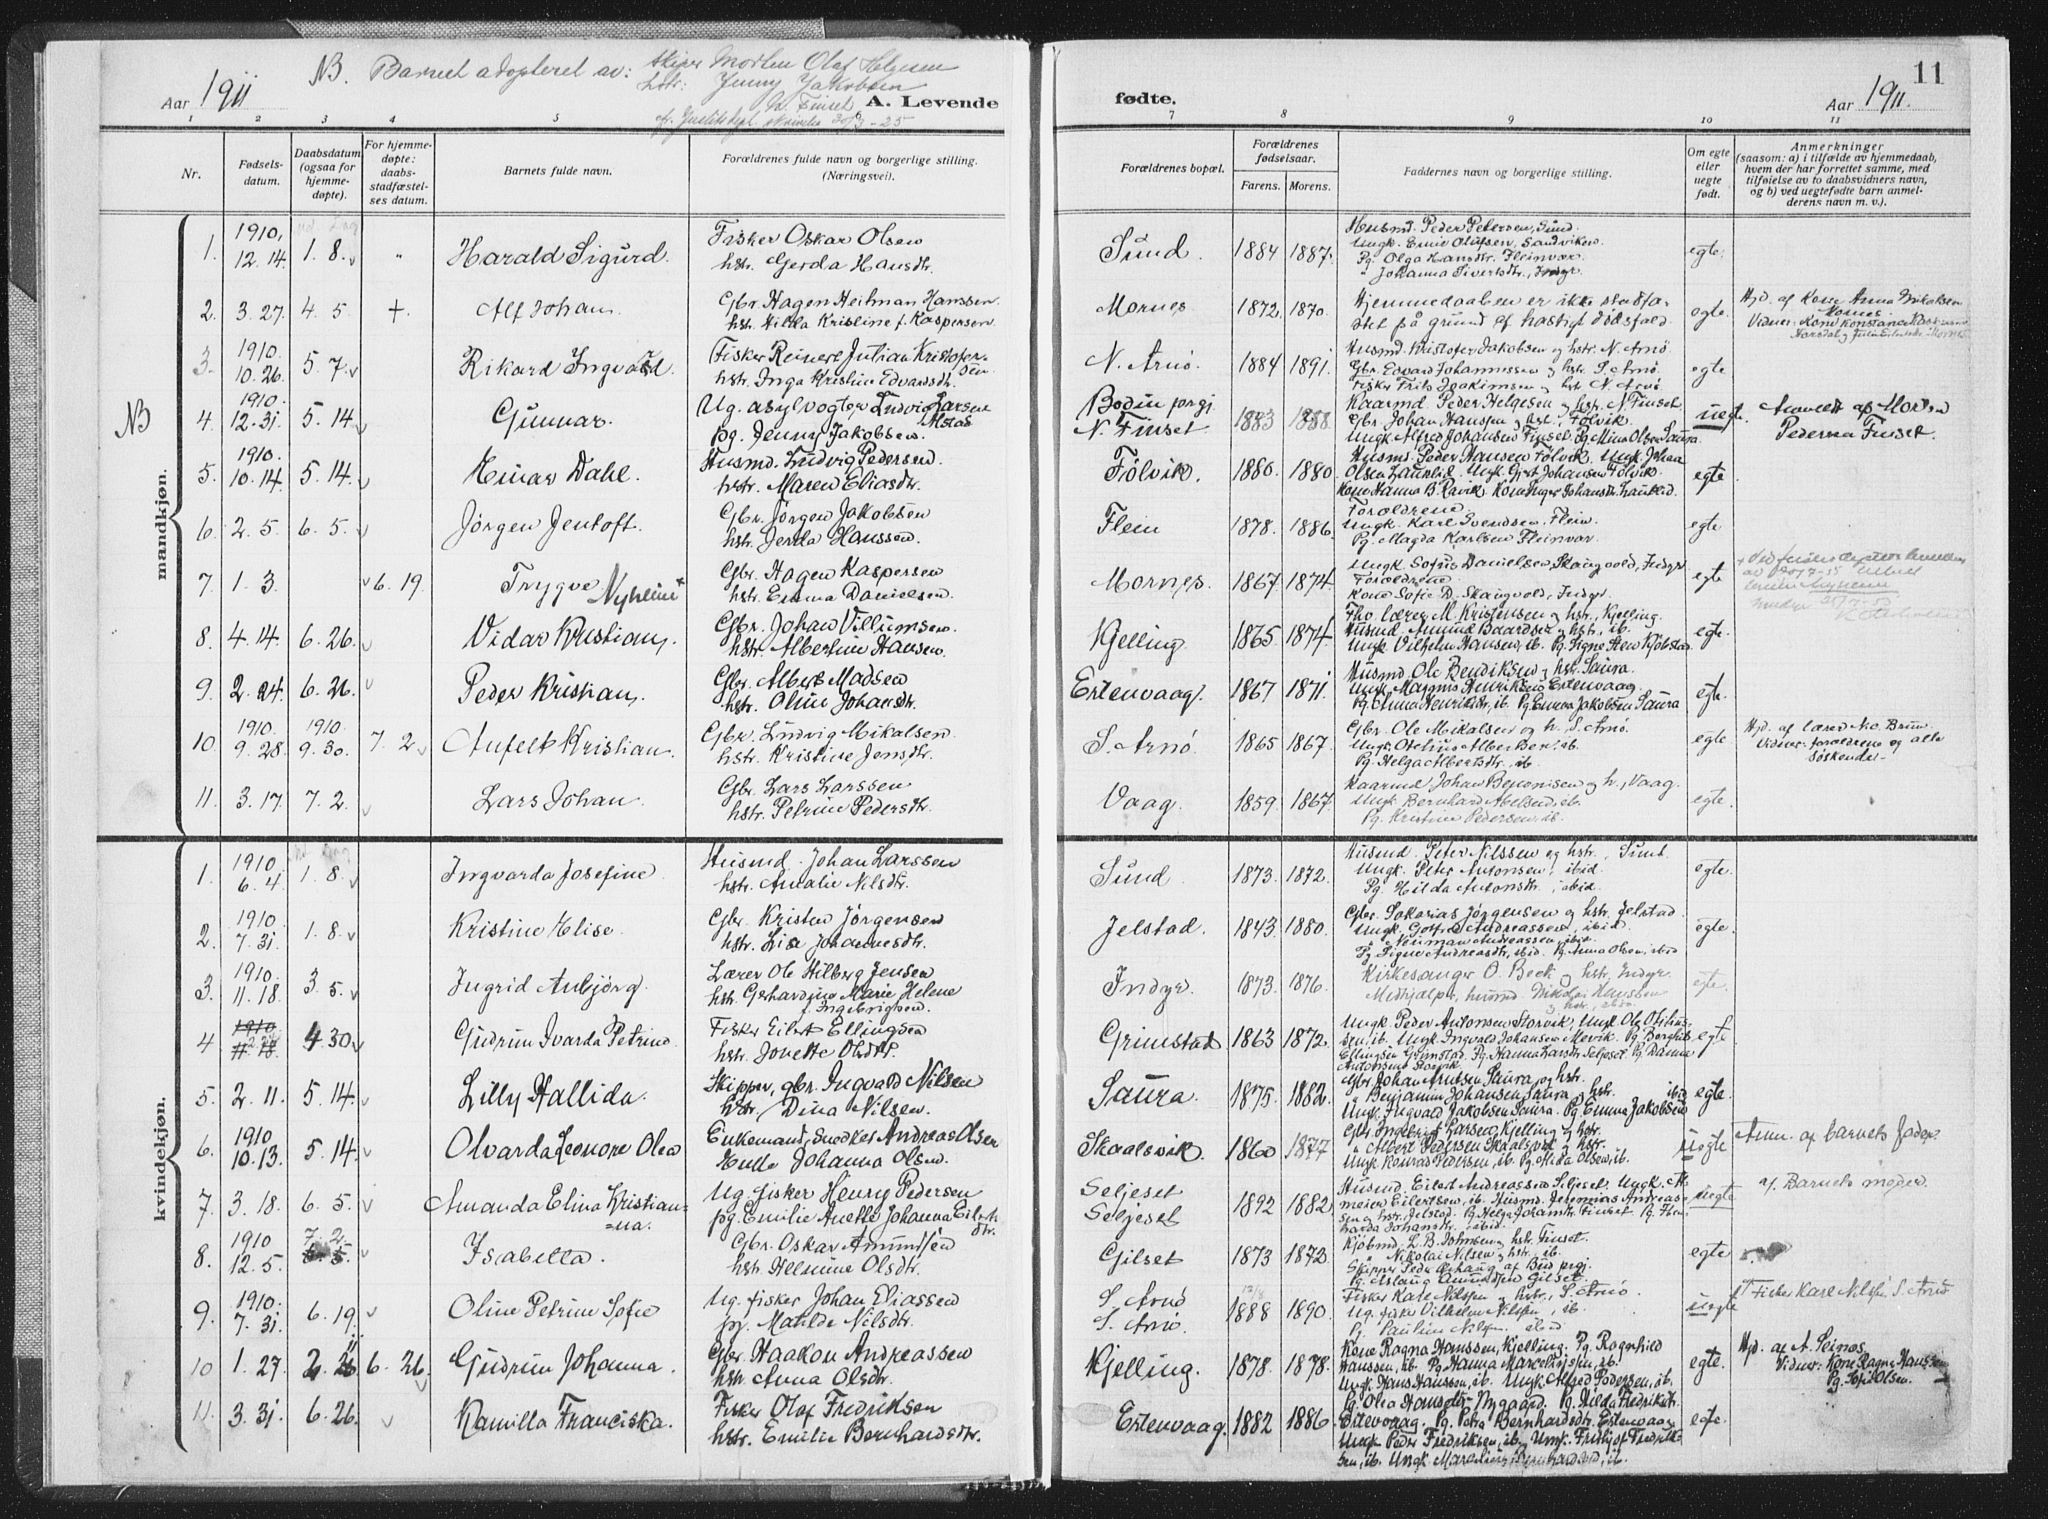 NB. Barnet adopteret av: skiper Morten Olaf Helgesen
hstr: Jenny Jakobsen
N. Finset
cfr. Justitsdept. skrivelse 30/3-25
Aar 1911
A. Levende
1 2 3 4 5 6
Nr.
Fødsels-
datum.
Daabsdatum
(ogsaa for
hjemme-
døpte).
For hjemme-
døpte:
daabs-
stadfæstel-
ses datum.
Barnets fulde navn.
Forældrenes fulde navn og borgerlige stilling.
(Næringsvei).
mandkjøn.
1. 1910, 12.14. 1. 8. " Harald Sigurd. Fisker Oskar Olsen
hstr. Gerda Hansdtr.
2. 3.27. 4. 5 +. Alf Johan Gbr Hagen Heitman Hanssen
hstr. Hilka Kristine f. Kaspersen
3. 1910. 10.26. 5. 7. Rikard Ingvald. Fisker Reinert Julian Kristofer-
sen
hstr. Inga Kristine Edvardsdtr.
NB 4. 1910. 12.31. 5. 14 Gunnar. Ug. asylvogter Ludvig Larsen
Alstad
pg. Jenny Jakobsen.
5. 1910. 10.14. 5. 14. Heinar Dahl. Husmd. Ludvig Pedersen.
hstr. Maren Eliasdtr.
6. 2. 5. 6. 5. Jørgen Jentoft. Gbr. Jørgen Jakobsen
hstr. Jerda Hanssen.
7. 1. 3. 6. 19. Trygve Nyheim + Gbr. Hagen Kaspersen
hstr. Emma Danielsen.
8. 4.14. 6. 26. Vidar Kristian. Gbr. Johan Villumsen.
hstr. Albertine Hansen.
9. 2. 24. 6. 26. Peder Kristian. Gbr. Albert Madsen
hstr. Oline Johansdtr.
10. 1910. 9.28. 1910. 9.30. 7. 2. Anfelt Kristian. Gbr. Ludvig Mikalsen.
hstr. Kristine Jensdtr.
11. 3.17. 7. 2. Lars Johan. Gbr. Lars Larssen
hstr. Petrine Pedersdtr.
kvindekjøn.
1. 1910 6. 4. 1. 8. Ingvarda Josefine. Husmd. Johan Larssen
hstr. Amalie Nilsdtr.
2. 1910 7. 31. 1. 8. Kristine Helise. Gbr Kristen Jørgensen
hstr. Lise Johannesdtr.
3. 1910. 11. 18. 3. 5. Ingrid Anbjørg. Lærer Ole Hilberg Jensen
hstr. Gerhardine Marie Helene
f. Ingebrigtsen.
4 1910 11. 18 4 30 Gudrun Ivarda Petrine. Fisker Eilert Ellingsen
hstr. Jonette Olsdtr.
5. 2. 11. 5. 14. Lilly Hallida. Skipper, gbr. Ingvald Nilsen
hstr. Dina Nilsen.
6. 1910 10.13. 5. 14. Olvarda Leonore Olea Enkemand, Snedker Andreas Olsen
Johanna Olsen.
7. 3. 18. 6. 5. Amanda Elina Kristian-
=na. Ug. fisker Henry Pedersen
pg. Emilie Anette Johanna Eilerts
dtr.
8. 1910 12. 5. 7. 2. Isabella. Gbr. Oskar Amundsen
hstr. Helmine Olsdtr.
9. 1910. 7. 31. 6. 19. Oline Petrine Sofie Ug. fisker Johan Eliassen
pg. Matilde Nilsdtr.
10 1. 27. 6. 26. Gudrun Johanna. Gbr. Haakon Andreassen
hstr. Anna Olsdtr.
11. 3. 31. 6. 26. Kamilla Franciska. Fisker Olaf Fredriksen
hstr. Emilie Bernhardsdtr.
11
fødte.
Aar 1911.
7 8 9 10 11
Forældrenes bopæl.
Forældrenes
fødselsaar.
Farens. Morens.
Faddernes navn og borgerlige stilling.
Om egte
eller
uegte
født.
Anmerkninger
(saasom: a) i tilfælde av hjemmedaab,
hvem der har forrettet samme, med
tilføielse av to daabsvidners navn,
og b) ved uegtefødte barn anmel-
derens navn m. v.).
Sund. 1884 1887. Husmd. Peder Petersen, Sund.
Ungk. Emil Olufsen, Sandviken.
Pg. Olga Hansdtr. Fleinvær
" Johanna Sivertsdtr., Indyr. egte.
Mornes 1872. 1870. Hjemmedaaben er ikke stadfæ-
stet på grund af hastigt dødsfald. egte. Hjd. af Kone Anna Nikolsen
Mornes.
Vidner: Kone Konstanse
N. Arnø. 1884 1891. Husmd. Kristofer Jakobsen og hstr. N. Arnø
Gbr. Edvard Johannessen og hstr. S. Arnø.
Fisker Frits Joakimsen og hstr. N. Arnø egte
Bodin prgj.
N. Finset. 1883 1888 Kaarmd. Peder Helgesen og hstr. N. Finset
Gbr. Johan Hanssen og hst., Følvik.
Ungk Alfred Johansen Finset. Pg. Mina Olsen Saura. uegte. Anmeldt af Morten
Pedersen Finset.
Følvik. 1880. 1880. Husmd. Peder Hansen Følvik. Ungk. Johan
Olsen Ungk. Gert Johansen Følvik.
Kone Hanna B. Ravik. Kone Inger Johansdtr. egte
Flein 1878. 1886. Forældrene
Ungk. Karl Svendsen, Flein.
Pg. Magda Karlsen Fleinvær. egte
Mornes. 1867. 1874. Ungk. Sofus Danielsen Skaugvold, Indyr
Forældrene
Kone Sofie D. Skaugvold, Indyr. egte
Kjelling 1865. 1874. Fho. lærer M. Kristensen og hstr., Kjelling.
Husmd. Amund Baardsen og hstr., ib.
Ungk. Vilhelm Hansen, ib. Pg. Signe Steen Kjøbstad. egte.
Ertenvaag. 1867 1871. Husmd Ole Bendiksen og hstr. Saura.
Ungk Magnus Henriksen Ertenvaag.
Pg. Anna Henriksdtr., ib. Pg. Emma Jakobsen Saura egte.
S. Arnø. 1865 1867. Gbr. Ole Mikalsen og h. S. Arnø.
Ungk. Otelius Albertsen, ib.
Pg. Helga Albertsdtr., ib egte Hjd. af lærer Nic. Bruun.
Vidner: forældrene og alle
søskende.
Vaag. 1859. 1867. Kaarmd Johan Benonisen og h., Vaag.
Ungk Bernhard Abelsen, ib.
Pg. Kristine Pedersen, ib. egte.
Sund 1873. 1872. Husmd. Peter Nilssen og hstr., Sund.
Ungk. Peter Antonsen, ibid.
Pg. Hilda Antonsdtr., ibid. egte.
Jelstad. 1843. 1880. Gbr. Sakarias Jørgensen og hstr. Jelstad.
Ungk. Gotfred Andreassen, ibid.
" Neuman Andreassen, ibid.
Pg. Signe Andreasdtr., ibid. Pg. Anna Olsen, ibid egte.
Indyr. 1873. 1876. Kirkesanger O. Beck og hstr., Indyr.
Medhjælper, husmd. Nikolai Hanssen
og hstr., ibid. egte.
Grimstad 1863 1872. Ungk. Peder Antonsen Storvik, Ungk Ole Otilius-
sen, ib. Ungk Ingvald Johansen Mevik. Pg. Borghild
Ellingsen Grimstad. Pg. Hanna Larsdtr. Seljeset. Pg.
Antonsen Storvik egte
Saura. 1875. 1882. Gbr. Johan Arntsen Saura, og hstr.
" Benjamin Johansen Saura og hstr. ibid
Ungk. Ingvald Jakobsen Saura. Pg. Emma Jakobsen egte.
Skaalsvik. 1860 1877 Gbr. Ingebrigt Larsen, Kjelling og hstr.
" Albert Pedersen Skaalsvik og hstr.
Ungk. Konrad Pedersen, ib. Pg. Alida Olsen, ib. uegte Anm. af barnets fader.
Seljeset
Seljeset 1892 1882. Husmd. Eilert Andreassen Seljeset. Ungk.
Eilertsen, ib. Husmd. Jeremias Andreas-
sen og hstr. Jelstad. Pg. Helga Johansdtr. Finset. Pg.
Johansdtr. ibid. uegte af Barnets moder.
Gilset 1873 1872. Kjøbmd. L. B. Johnsen og hstr. Finset.
" Nikolai Nilsen og hstr., ib.
Skipper Peder af Bud prgj.
Pg. Aslaug Amundsen Gilset. egte
S. Arnø
S. Arnø. 1888 1890. Fisker Karl Nilsen og hstr., S. Arnø.
Ug. fisker Vilhelm Nilsen, ib.
Pg. Pauline Nilsen ibid. uegte Fisker Karl Nilsen S. Arnø
Kjelling. 1878. 1878. Kone Ragna Hanssen, Kjelling. Pg. Ragnhild
Hanssen, ib. Pg. Hanna Marcelissen, ib.
Ungk. Hans Hanssen, ib. Ungk. Alfred Pedersen, ib. egte. Hjd. af A. Seines
Vidner: Kone Ragna Hanssen
Pg. Sofie Olsen.
Ertenvaag. 1882 1886. Pg. Olea Hansdtr. Nygaard. Pg. Hilda Fredriksdtr.
Ertenvaag. Pg. Petra Bernhardsdtr. Ertenvaag
Ungk Peder Fredriksen, ib. og Ungk. Fridtjof Fredrik-
sen, ib. Ungk. ib. egte.